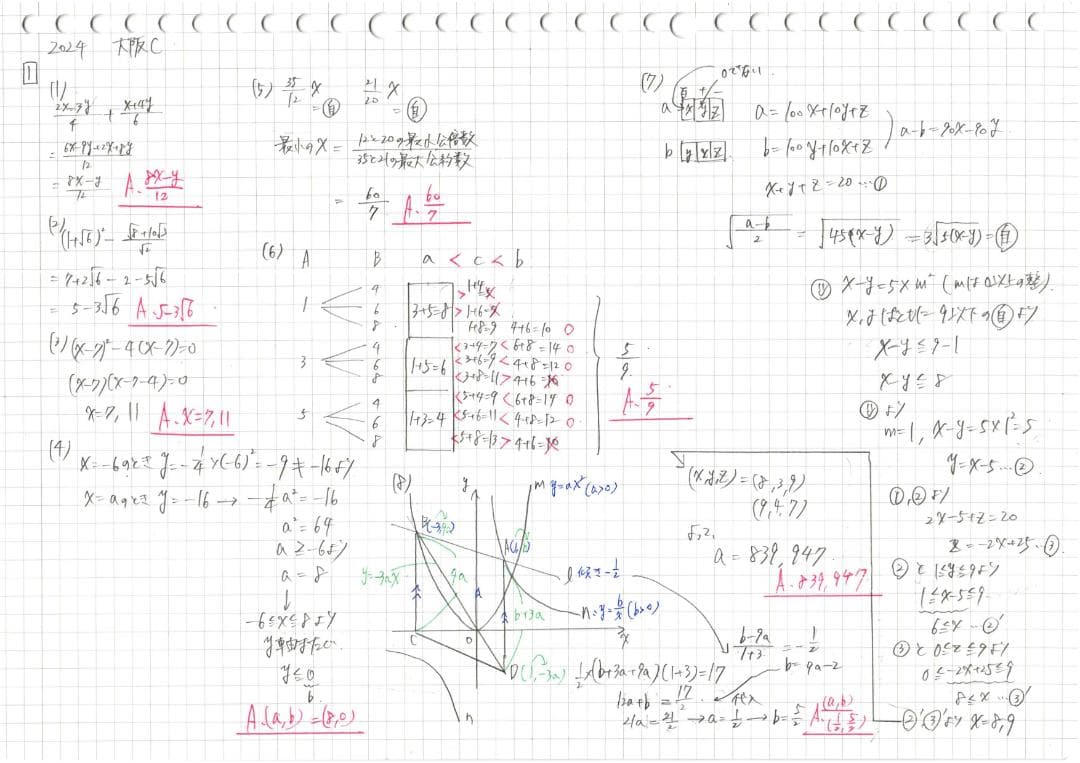 2024 大阪C
1
(1)
(2x-3y)/4 + (x+4y)/6
= (6x-9y+2x+8y)/12
= (8x-y)/12
A. (8x-y)/12
(2)
(1+√6)² - (√8+10√3)/√2
= 7+2√6-2-5√6
= 5-3√6
A. 5-3√6
(3) (x-7)²-4(x-7)=0
(x-7)(x-7-4)=0
x=7, 11
A. x=7, 11
(4)
x=-6のとき y=-1/4×(-6)²=-9≠-16より
x=aのとき y=-16 → -1/4a²=-16
a²=64
a≧-6より
a=8
↓
-6≦x≦8より
y軸またぐ
y≦0
b
A. (a,b)=(8,0)
(5) 35/12 x = 自 21/20 x = 自
最小のx = 12と20の最小公倍数/35と21の最大公約数
= 60/7
A. 60/7
(6) A B a < c < b
1 4 6 8
3 4 6 8
5 4 6 8
3+5=8
1+5=6
1+3=4
> 1+4=5
> 1+6=7
1+8=9 4+6=10 ○
< 3+4=7 < 6+8=14 ○
< 3+6=9 < 4+8=12 ○
< 3+8=11 > 4+6=10
< 5+4=9 < 6+8=14 ○
< 5+6=11 < 4+8=12 ○
< 5+8=13 > 4+6=10
5/9
A. 5/9
(7)
0でない
百 十 一
a → x y z a=100x+10y+z
b y x z b=100y+10x+z
a-b=90x-90y
x+y+z=20 …①
√((a-b)/2) = √(45(x-y)) = 3√(5(x-y)) = 自
x-y=5×m² (mは0以上の整)
x,yはともに1~9以下の自より
x-y≦9-1
x-y≦8
より
m=1, x-y=5×1²=5
y=x-5 …②
①,②より
2x-5+z=20
z=-2x+25 …③
②と1≦y≦9より
1≦x-5≦9
6≦x …②'
③と0≦z≦9より
0≦-2x+25≦9
8≦x …③'
②'③'より x=8,9
(x,y,z)=(8,3,9)
(9,4,7)
よって、
a=839, 947
A. 839, 947
(8)
y
m y=ax² (a>0)
B(-3,9a)
A(1,b)
y=-3ax
9a
l 傾き-1/2
b+3a
n: y=b/x (b>0)
C
O
x
D(1,-3a)
n
1/2×(b+3a+9a)(1+3)=17
12a+b=17/2
代入
(b-9a)/(1+3) = -1/2
b=9a-2
21a=21/2 → a=1/2 → b=5/2
A. (a,b)
(1/2, 5/2)